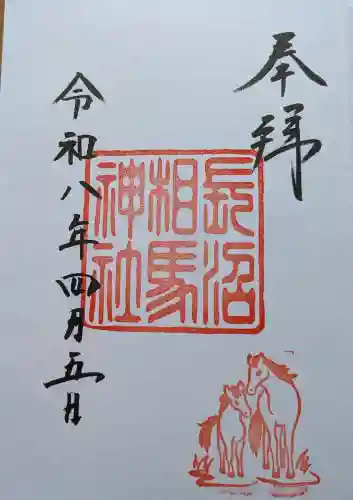 奉拝
長沼
相馬
神社
令和八年四月五日